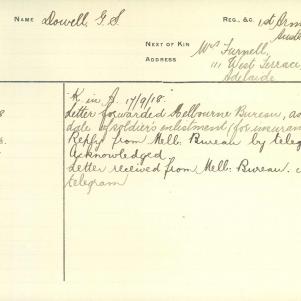 NAME Dowell, G.S REG., &C. 1st Arm
NEXT OF KIN Mrs Furnell,
ADDRESS 111 West Terrace,
Adelaide
"K in A. 17/9/18."
8 Letter forwarded Melbourne Bureau, as
date of soldier's enlistment (for insuran
Reply from Melb: Bureau by teleg
Acknowledged.
Letter received from Melb: Bureau. c
telegram)